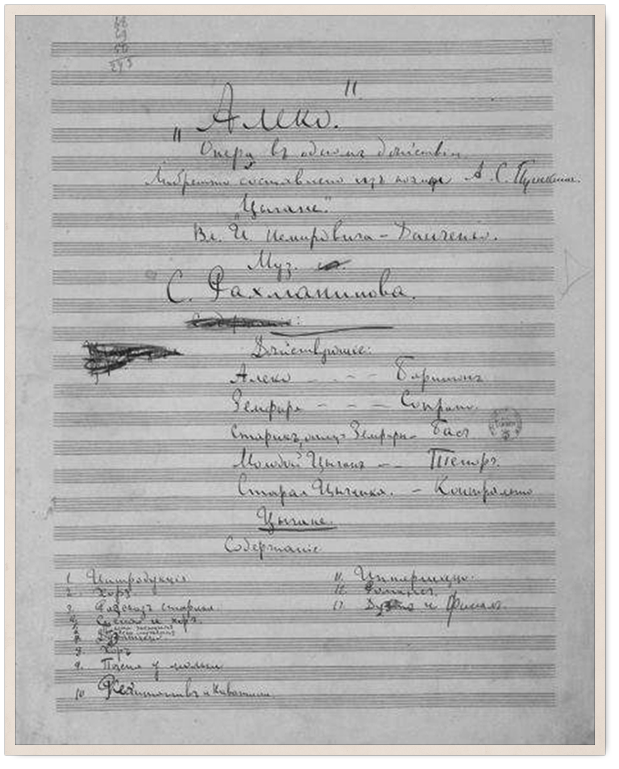 48
49
50
„Алеко."
Опера въ одномъ дѣйствіи.
Либретто составлено изъ поэмы А. С. Пушкина
„Цыгане"
Вл. И. Немировича-Данченко.
Муз.
С. Рахманинова.
Содержаніе:
Дѣйствующіе:
Алеко - - - - Баритонъ
Земфира - - - Сопрано.
Старикъ, отецъ Земфиры - Басъ
Молодой Цыганъ - - Теноръ.
Старая Цыганка. - Контральто
Цыгане.
Содержаніе
1. Интродукція
2. Хоръ
3. Разсказъ старика
4. Сцена и хоръ.
8. Хоръ
9. Пѣсня у люльки
10 Речитативъ и Каватина.
11. Интермеццо.
12. Романсъ.
13. Дуэтъ и финалъ.